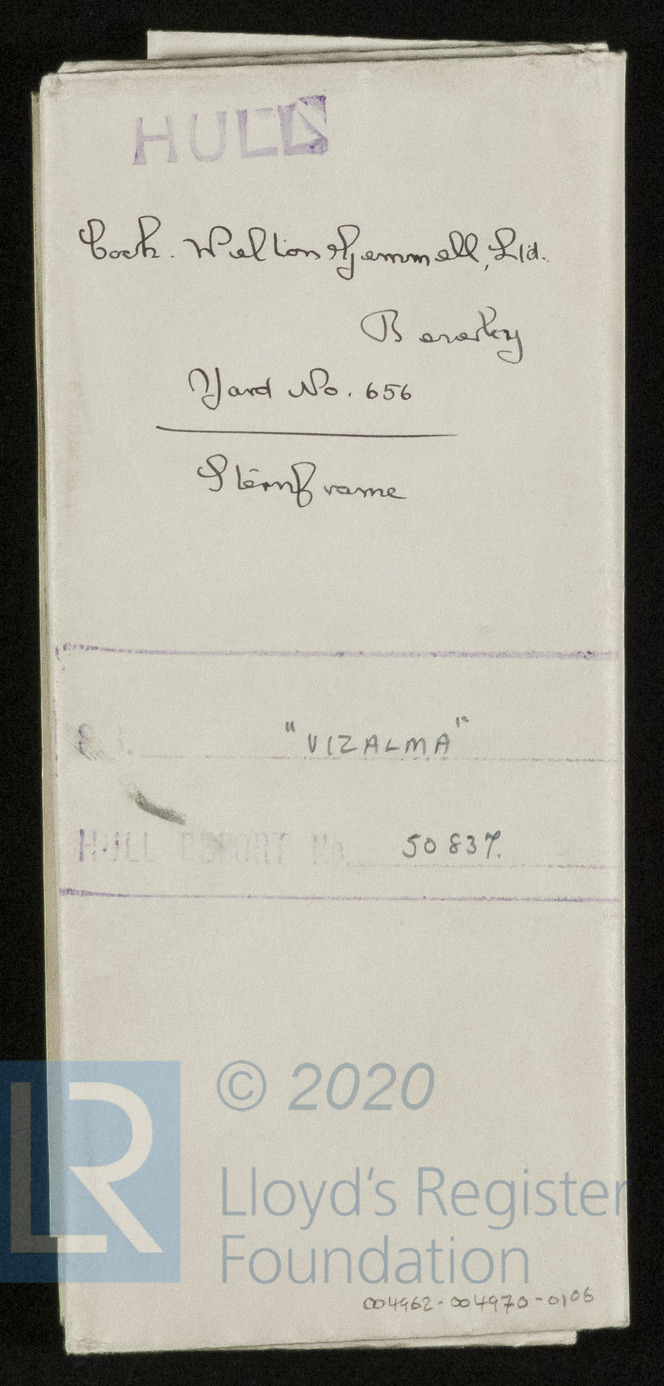 HULL
Cook. Welton & Gemmell, Ltd.
Beverley
Yard No. 656
Sternframe
S.S. "VIZALMA"
HULL REPORT No. 50837.
LR
© 2020
Lloyd's Register
Foundation
004962-004970-0106